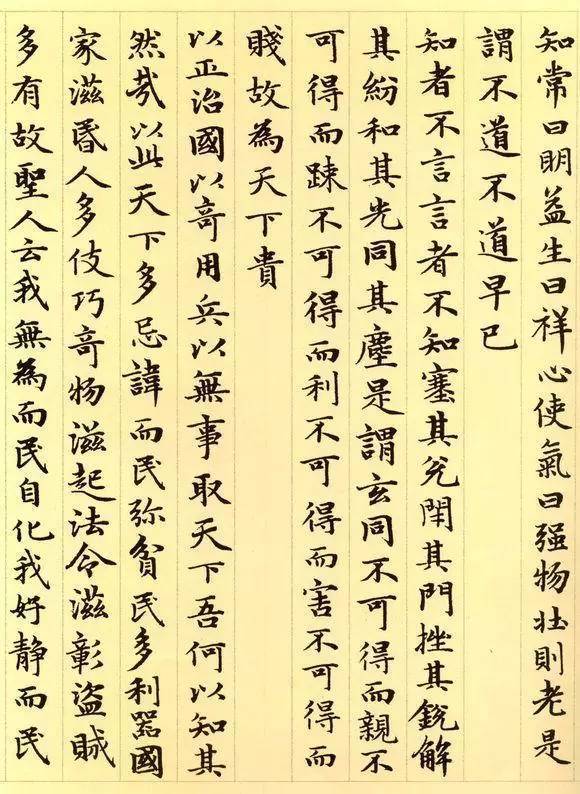 知常曰明益生曰祥心使氣曰强物壮則老是
謂不道不道早已
知者不言言者不知塞其兊閇其門挫其銳解
其紛和其光同其塵是謂玄同不可得而親不
可得而踈不可得而利不可得而害不可得而
賤故為天下貴
以正治國以竒用兵以無事取天下吾何以知其
然㢤以此天下多忌諱而民弥貧民多利器國
家滋昏人多伎巧竒物滋起法令滋彰盜賊
多有故聖人云我無為而民自化我好静而民